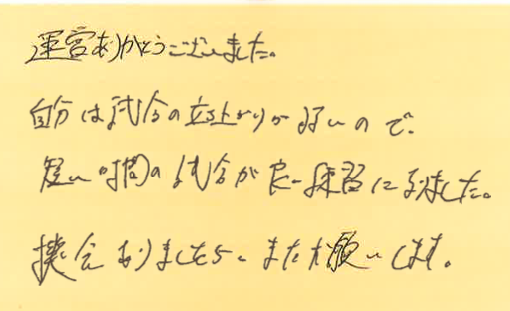 運営ありがとうございました。
自分は試合の立ち上がりが弱いので、
短い時間の試合が良い練習になりました。
機会ありましたら、またお願いします。